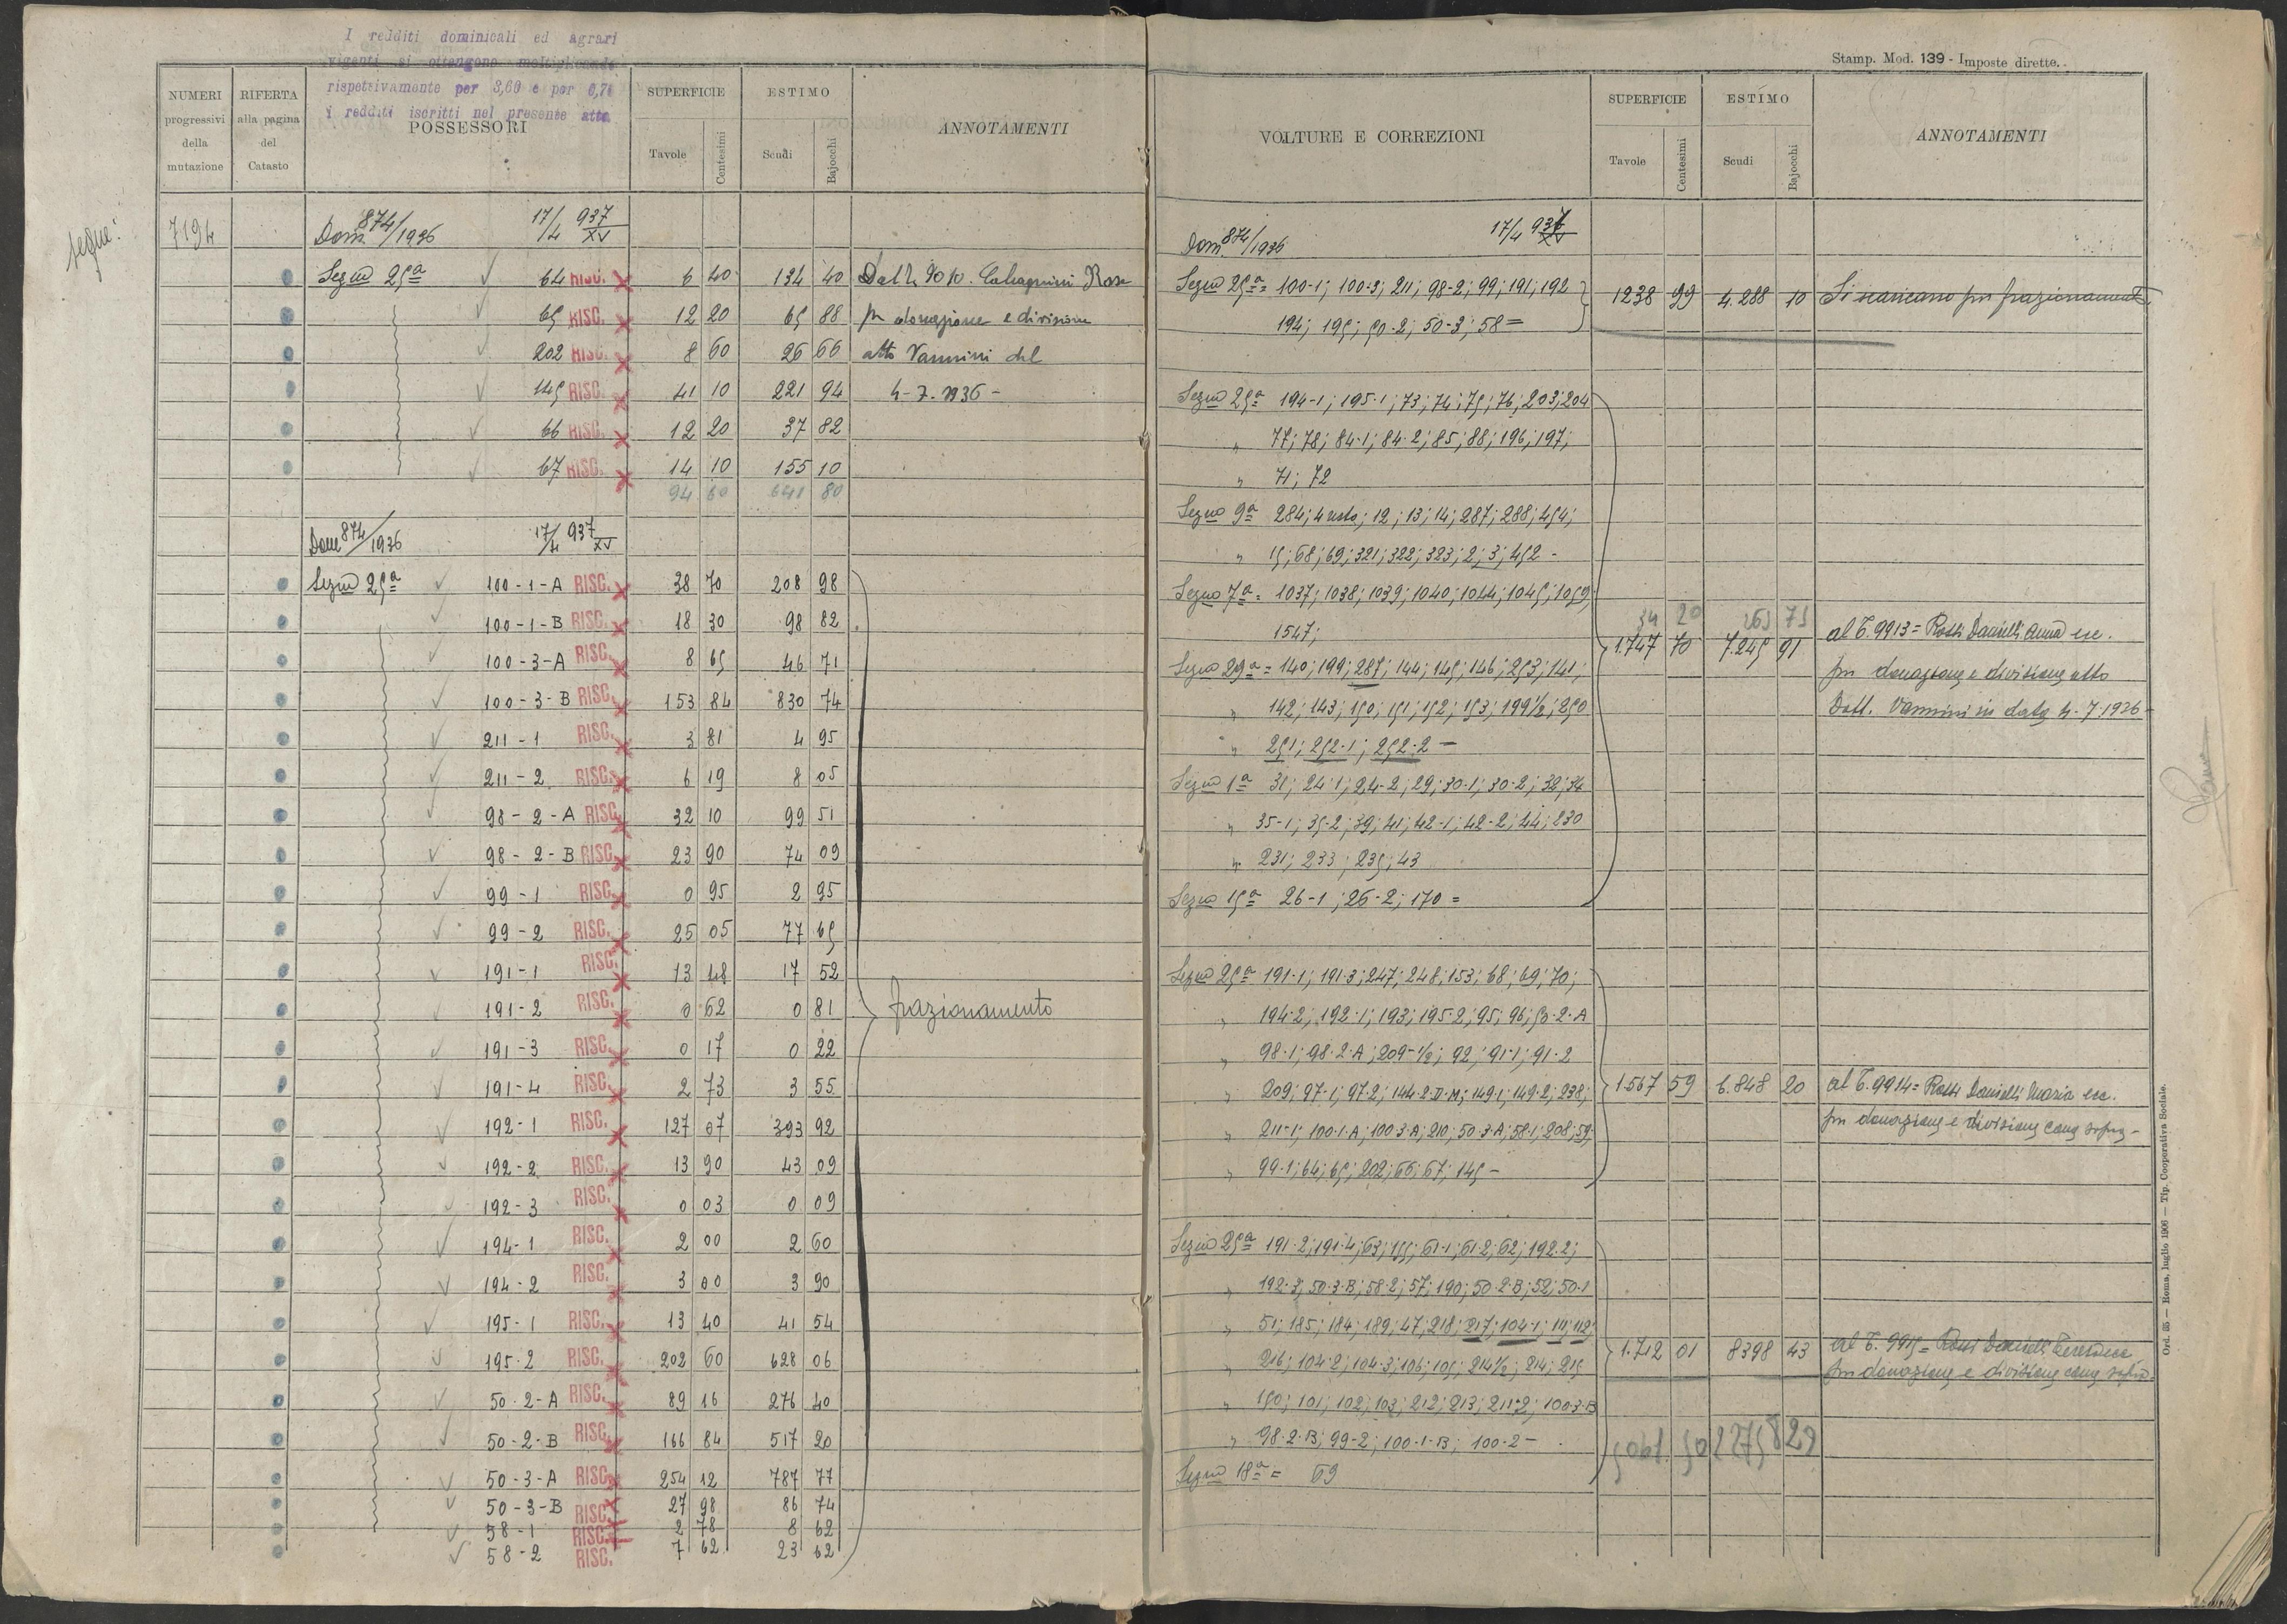 I redditi dominicali ed agrari
vigenti si ottengono moltiplicando
rispettivamente per 3,60 e per
i redditi iscritti nel presente atto
NUMERI progressivi della mutazione
RIFERTA alla pagina del Catasto
POSSESSORI
SUPERFICIE
Tavole Centesimi
ESTIMO
Scudi Bajocchi
ANNOTAMENTI
segue:
7194 Dom. 874/1936 17/4 937 XV
Sezne 25a 64 RISC. 6 40 134 40 Dalla Rosa
65 RISC. 12 20 65 88 per donazione e divisione
202 RISC. 8 60 26 66 atto Vannini del
145 RISC. 41 10 221 94 4-7-1936 -
66 RISC. 12 20 37 82
67 RISC. 14 10 155 10
94 60 641 80
Dom 874/1936 17/4 937 XV
Sezne 25a 100-1-A RISC. 38 70 208 98
100-1-B RISC. 18 30 98 82
100-3-A RISC. 8 65 46 71
100-3-B RISC. 153 84 830 74
211-1 RISC. 3 81 4 95
211-2 RISC. 6 19 8 05
98-2-A RISC. 32 10 99 51
98-2-B RISC. 23 90 74 09
99-1 RISC. 0 95 2 95
99-2 RISC. 25 05 77 65
191-1 RISC. 13 48 17 52
191-2 RISC. 0 62 0 81 frazionamento
191-3 RISC. 0 17 0 22
191-4 RISC. 2 73 3 55
192-1 RISC. 127 07 393 92
192-2 RISC. 13 90 43 09
192-3 RISC. 0 03 0 09
194-1 RISC. 2 00 2 60
194-2 RISC. 3 00 3 90
195-1 RISC. 13 40 41 54
195-2 RISC. 202 60 628 06
50-2-A RISC. 89 16 276 40
50-2-B RISC. 166 84 517 20
50-3-A RISC. 254 12 787 77
50-3-B RISC. 27 98 86 74
58-1 RISC. 2 78 8 62
58-2 RISC. 7 62 23 62
Stamp. Mod. 139 - Imposte dirette.
VOLTURE E CORREZIONI
SUPERFICIE
Tavole Centesimi
ESTIMO
Scudi Bajocchi
ANNOTAMENTI
Dom 874/1936 17/4 937 XV
Sezne 25a = 100-1; 100-3; 211; 98-2; 99; 191; 192
194; 195; 50-2; 50-3; 58 = 1238 99 4.288 10 Si scaricano per frazionamento
Sezne 25a 194-1; 195-1; 73; 74; 75; 76; 203; 204
" 77; 78; 84-1; 84-2; 85; 88; 196; 197;
" 71; 72
Sezne 9a 284; 4 resto; 12; 13; 14; 287; 288; 454;
" 15; 68; 69; 321; 322; 323; 2; 3; 452 -
Sezne 7a = 1037; 1038; 1039; 1040; 1044; 1045; 1059;
1547;
34 20 263 75
1.747 70 7.245 91 al C. 9913 = Rossi Danielli Anna ecc.
per donazione e divisione atto
Dott. Vannini in data 4-7-1936
Sezne 29a = 140; 199; 287; 144; 145; 146; 253; 141;
" 142; 143; 150; 151; 152; 153; 199 1/2; 250
" 251; 252-1; 252-2 -
Sezne 1a 31; 24-1; 24-2; 29; 30-1; 30-2; 32; 34
" 35-1; 35-2; 39; 41; 42-1; 42-2; 44; 230
" 231; 233; 235; 43
Sezne 15a 26-1; 26-2; 170 =
Sezne 25a 191-1; 191-3; 247; 248; 153; 68; 69; 70;
" 194-2; 192-1; 193; 195-2; 95; 96; 50-2-A
" 98-1; 98-2-A; 209-1/2; 92; 91-1; 91-2
" 209; 97-1; 97-2; 144-2-D-M; 149-1; 149-2; 238;
1.567 59 6.848 20 al C. 9914 = Rossi Danielli Maria ecc.
per donazione e divisione come sopra -
" 211-1; 100-1-A; 100-3-A; 210; 50-3-A; 58-1; 208; 59;
" 99-1; 64; 65; 202; 66; 67; 145 -
Sezne 25a 191-2; 191-4; 63; 155; 61-1; 61-2; 62; 192-2;
" 192-3; 50-3-B; 58-2; 57; 190; 50-2-B; 52; 50-1
" 51; 185; 184; 189; 47; 218; 217; 104-1; 111; 112;
" 216; 104-2; 104-3; 106; 105; 214 1/2; 214; 215
1.712 01 8398 43 al C. 9915 = Rossi Danielli ecc.
per donazione e divisione come sopra.
" 150; 101; 102; 103; 212; 213; 211-2; 100-3-B
" 98-2-B; 99-2; 100-1-B; 100-2 -
5061. 50 22758 29
Sezne 18a = 69
Ord. 55 — Roma, luglio 1906 — Tip. Cooperativa Sociale.